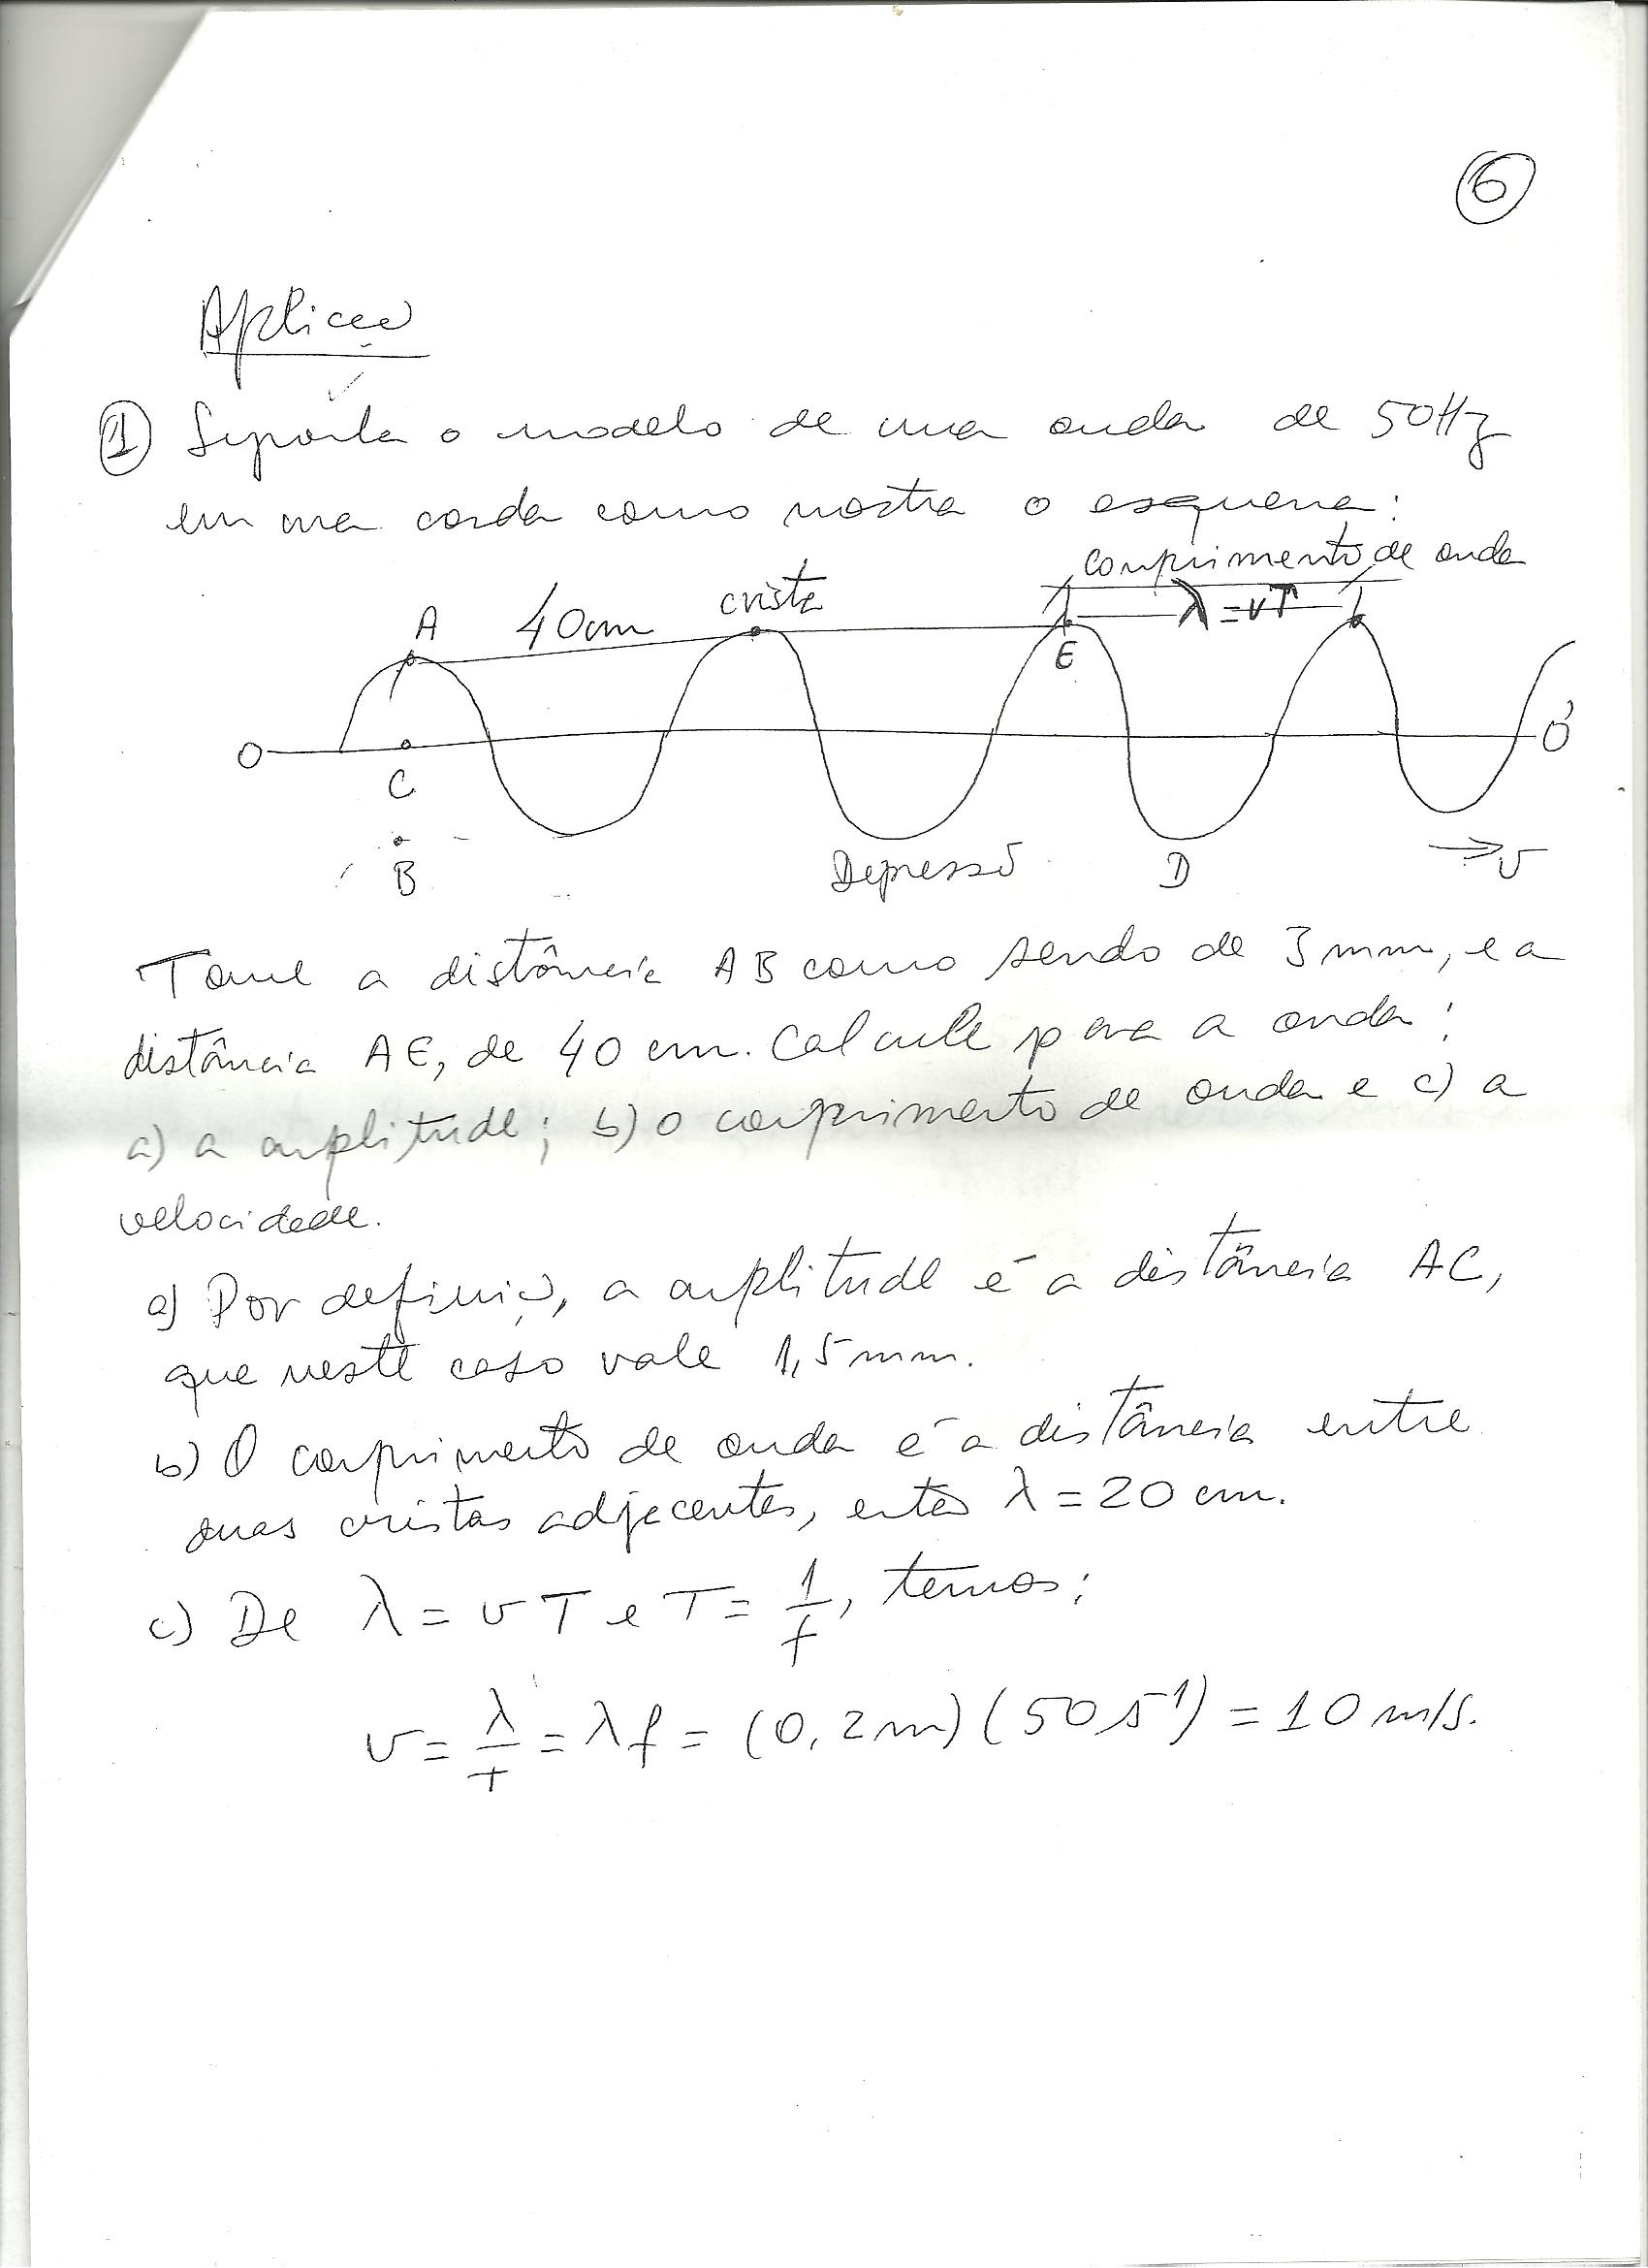 6
Aplicação
1 Suponha o modelo de uma onda de 50Hz
em uma corda como mostra o esquema:
comprimento de onda
A 40cm crista λ = vT
E
O O'
C
B Depressão D v
Tome a distância AB como sendo de 3mm, e a
distância AE, de 40 cm. Calcule para a onda:
a) a amplitude; b) o comprimento de onda e c) a
velocidade.
a) Por definição, a amplitude é a distância AC,
que neste caso vale 1,5mm.
b) O comprimento de onda é a distância entre
duas cristas adjacentes, então λ = 20 cm.
c) De λ = v T e T = 1/f, temos:
v = λ/T = λf = (0,2m)(50s⁻¹) = 10 m/s.